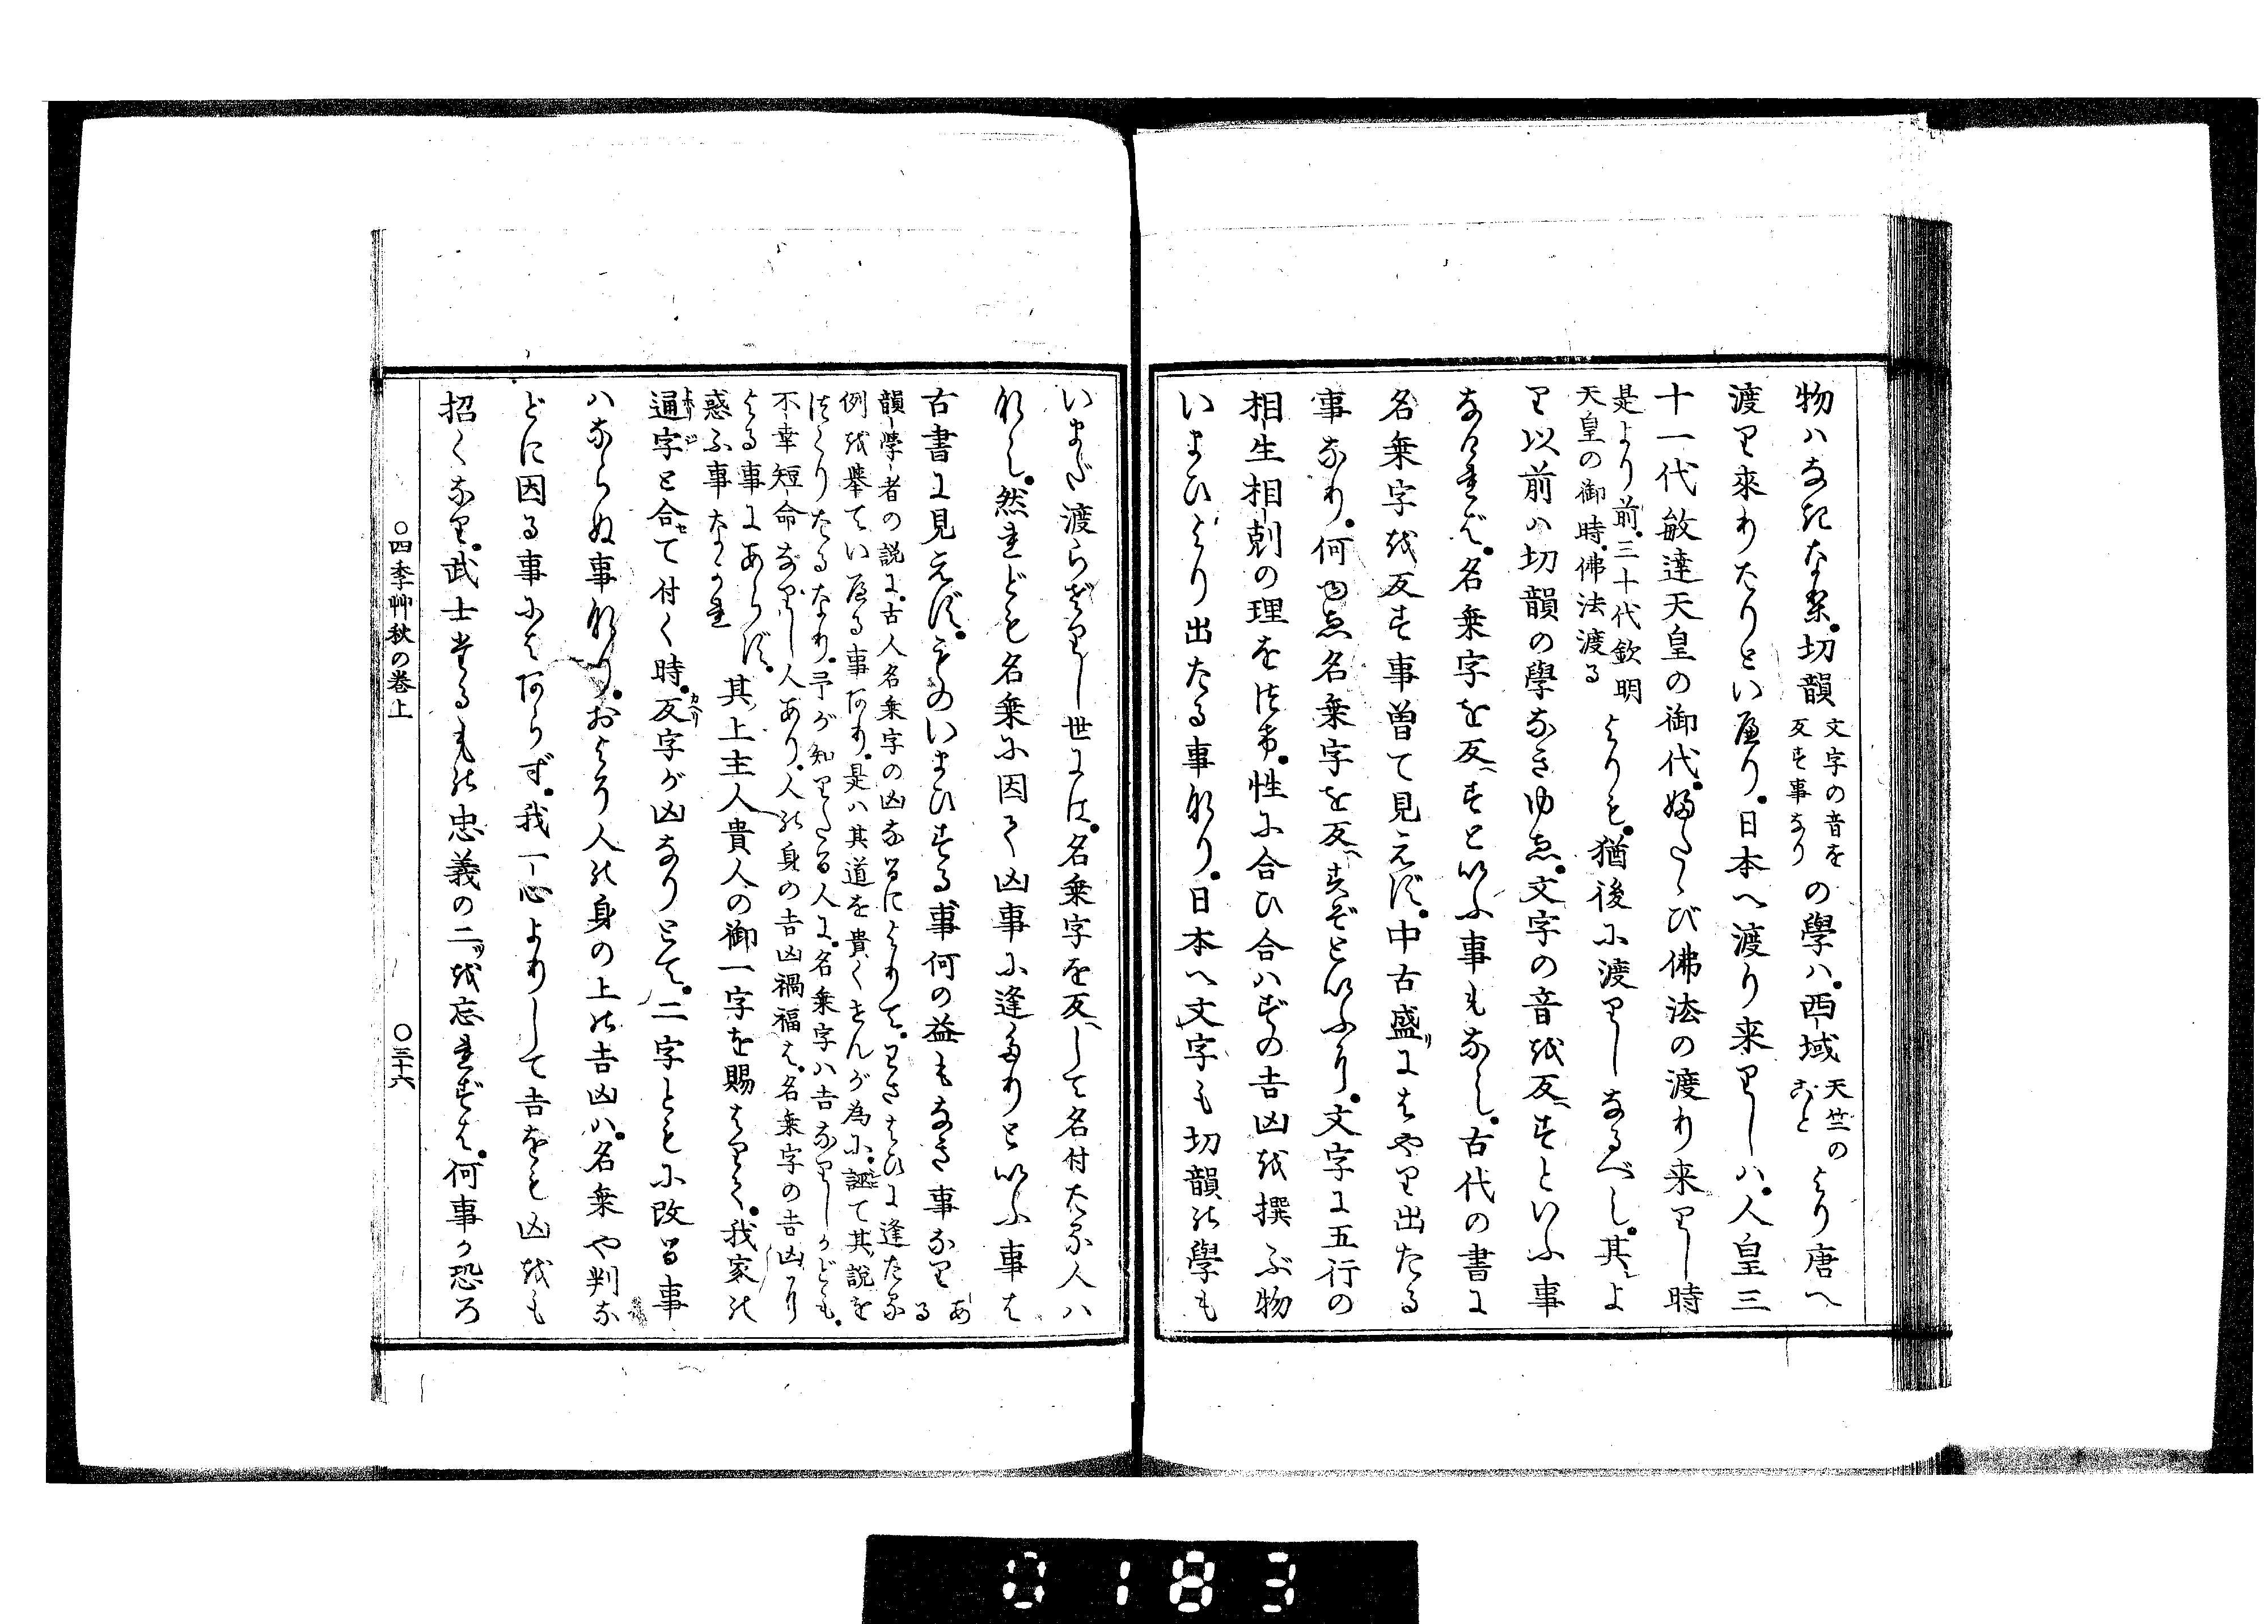 物ハなきな里。切韻文字の音を反す事なりの學ハ。西域天竺のことより唐へ
渡り來りたりといへり。日本へ渡り来りしハ。人皇三
十一代敏達天皇の御代。ふたゝび佛法の渡り来りし時
是より前。三十代欽明天皇の御時。佛法渡るよりも。猶後に渡りしなるべし。其よ
り以前ハ切韻の學なきゆゑ。文字の音を反すといふ事
なければ。名乗字を反すといふ事もなし。古代の書に
名乗字を反す事曽て見えず。中古盛りにはやり出たる
事なり。何ゆゑ名乗字を反すぞといふに。文字に五行の
相生相剋の理をつけ。性に合ひ合ハずの吉凶を撰ぶ物
いまひより出たる事なり。日本へ文字も切韻の學も
いまだ渡らざりし世には。名乗字を反して名付たる人ハ
なし。然れども名乗に因て凶事に逢たりといふ事も
古書に見えず。ものいまひする事何の益もなき事なりある
韻學者の説に。古人名乗字の凶なるによりて。わざはひに逢たる
例を擧ていへる事あり。是ハ其道を貴くせんが為に。誣て其説を
つくりたるなり。予が知りたる人に。名乗字ハ吉なりしかども。
不幸短命なりし人あり。人の身の吉凶禍福は。名乗字の吉凶に
よる事にあらず。
惑ふ事なかれ其上主人貴人の御一字を賜はりて。我家の
通字と合せて付く時。反字が凶なりとて。二字ともに改る事
ハならぬ事なり。およそ人の身の上の吉凶ハ。名乗や判な
どに因る事にはあらず。我一心よりして吉をも凶をも
招くなり。武士たるもの忠義の二ツを忘れずは。何事か恐ろ
〇四季艸秋の巻上
〇三十六
0183